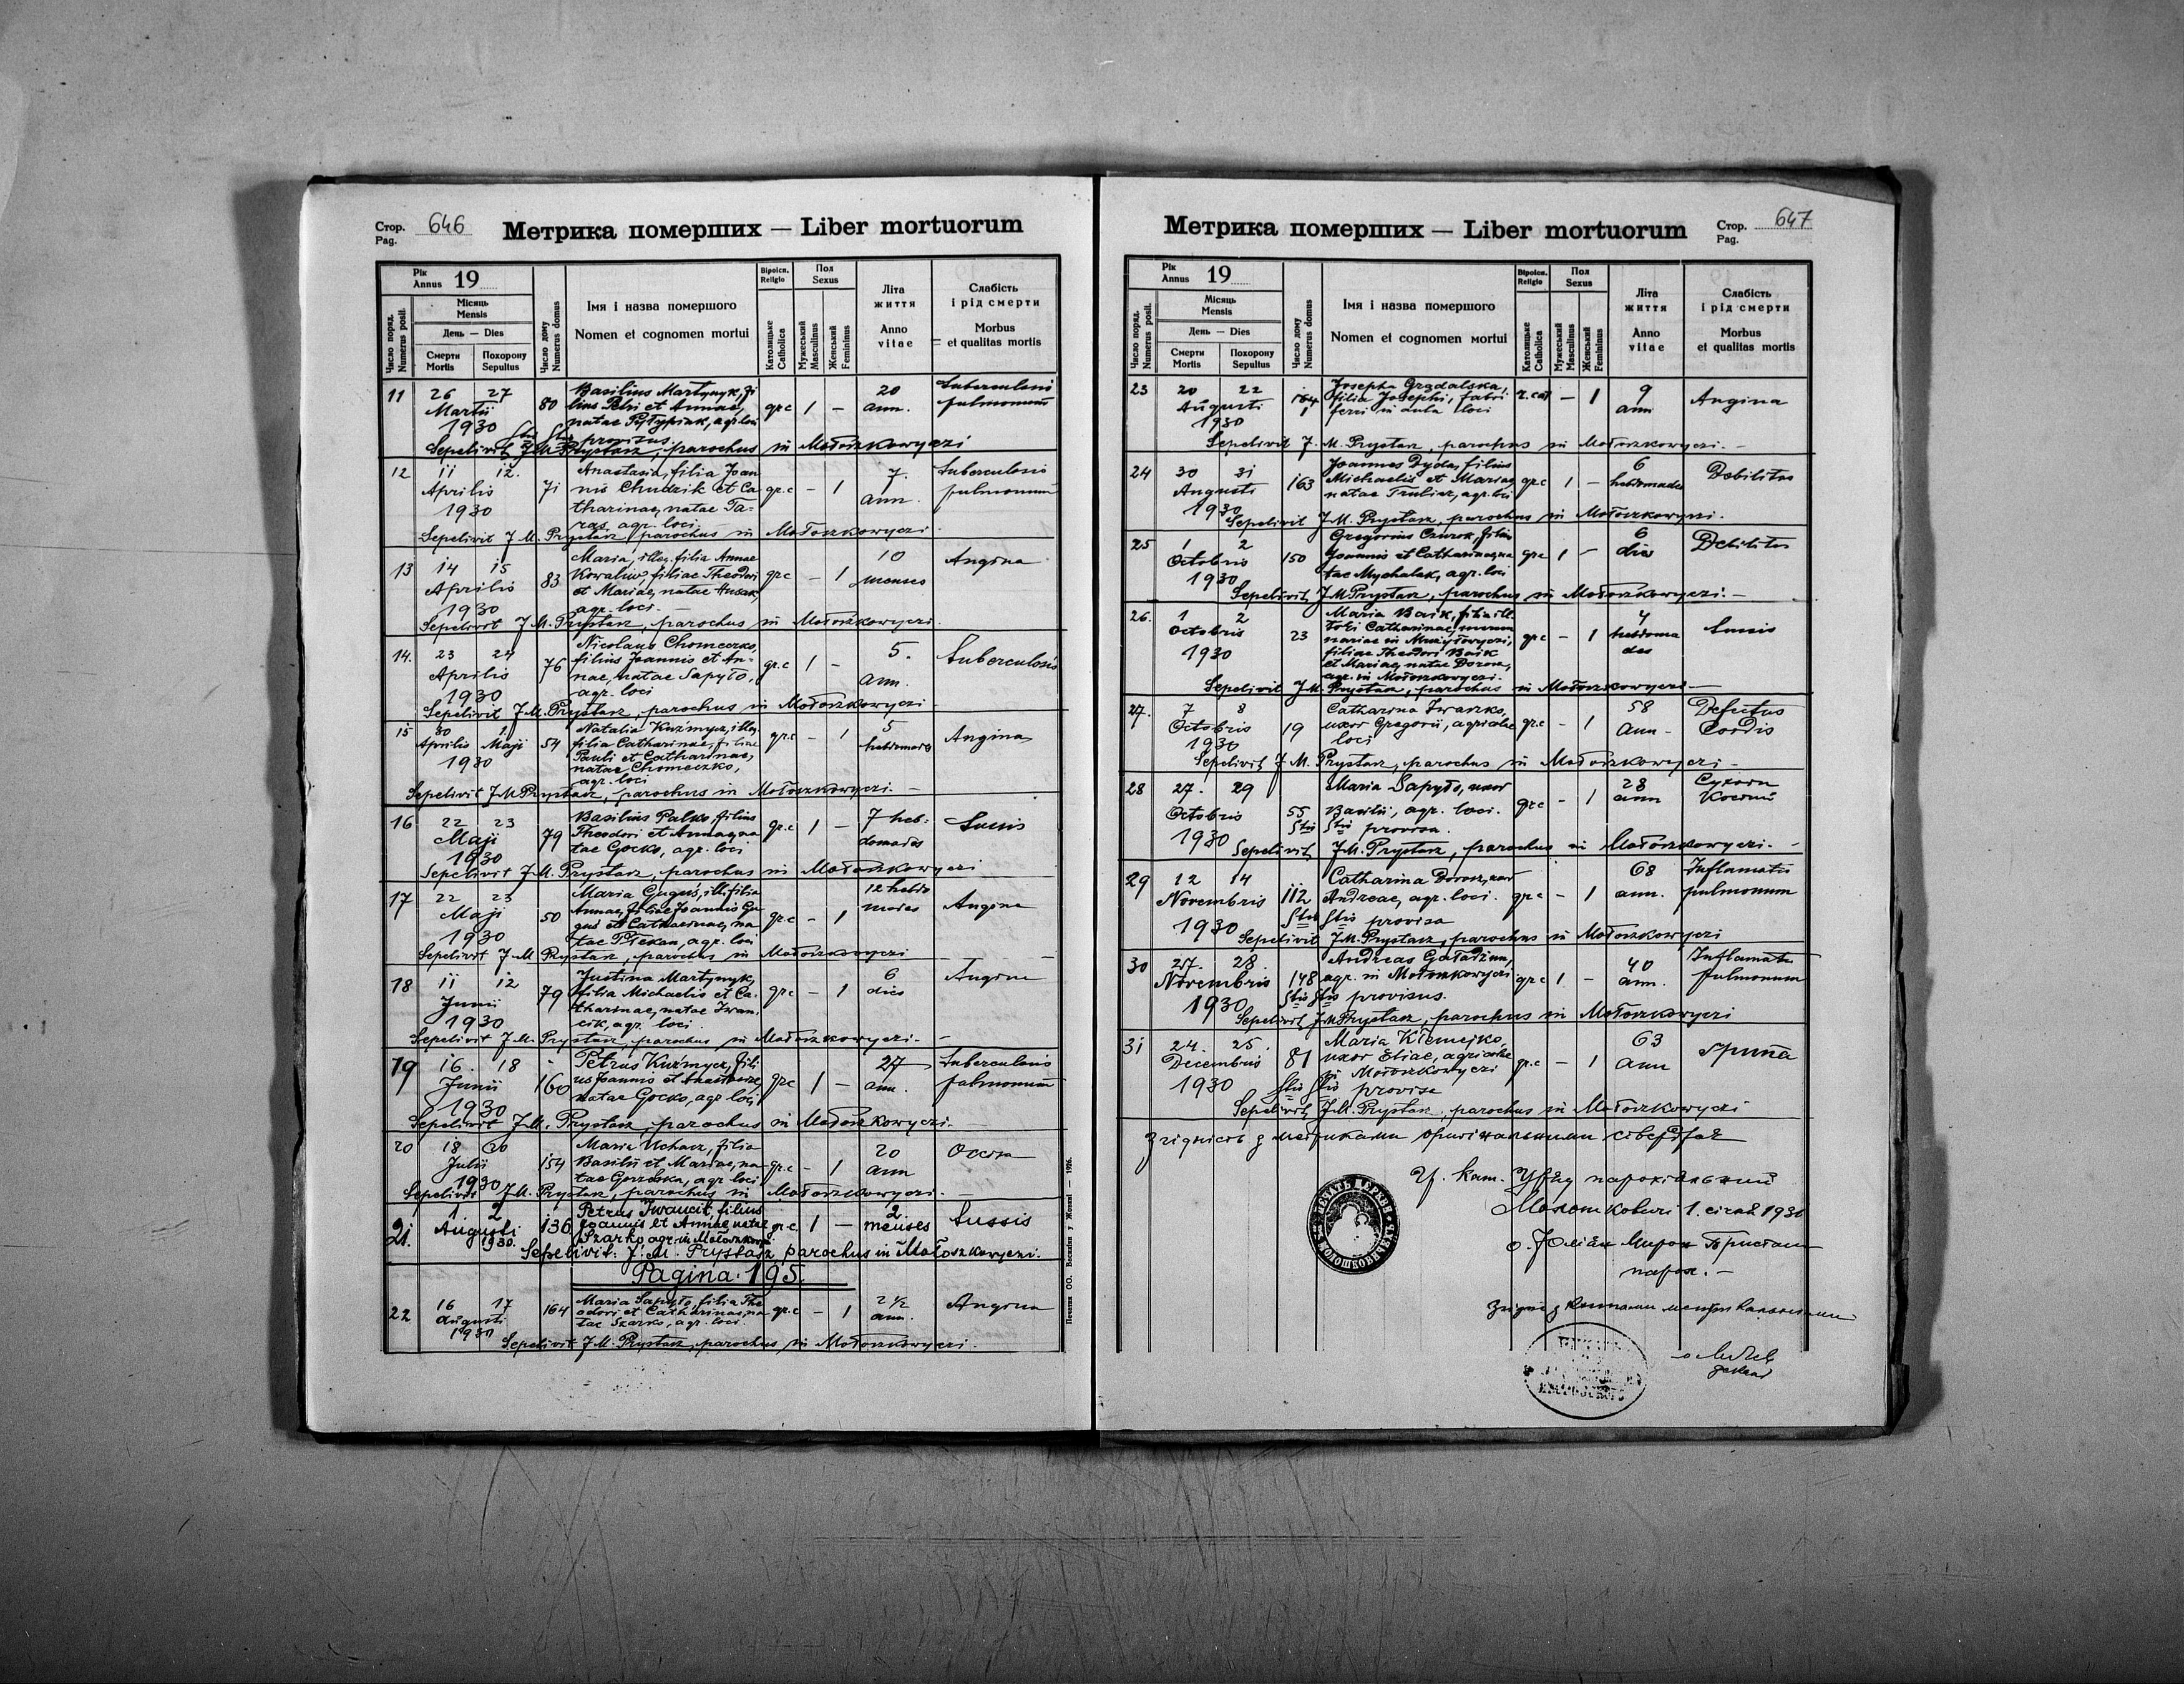 Стор. 646
Pag.
Метрика померших — Liber mortuorum
Рік
Annus 19
Місяць
Mensis
День — Dies
Смерти
Mortis
Похорону
Sepultus
Число поряд.
Numerus posit.
Число дому
Numerus domus
Імя і назва помершого
Nomen et cognomen mortui
Віроісп.
Religio
Католицьке
Catholica
Пол
Sexus
Мужеський
Masculinus
Женський
Femininus
Літа
життя
Anno
vitae
Слабість
і рід смерти
Morbus
et qualitas mortis
11 26 27 80 Basilius Martynyk, fi 20 Tuberculosis
Martii lius Petri et Annae, gr.c 1 — ann. pulmonum
1930 natae agr. loci
Stis Stis provisus.
Sepelivit J.M. Prystasz, parochus in Mołoszkowyczi
12 11 12. Anastasia, filia Joan 7. Tuberculosis
Aprilis 71 nis Chudzik et Ca gr.c — 1 ann. pulmonum
1930 tharinae, natae Ta-
ras, agr. loci
Sepelivit J.M. Prystasz, parochus in Mołoszkowyczi.
13 14 15 Maria, illeg. filia Annae 10 Angina
Aprilis 83 Kowaliw, filiae Theodori gr.c — 1 menses
1930 et Mariae, natae Husak,
agr. loci. —
Sepelivit J.M. Prystasz, parochus in Mołoszkowyczi.
14. 23 24 Nicolaus Chomeczko, 5. Tuberculosis
Aprilis 76 filius Joannis et An- gr.c 1 — ann.
1930 nae, natae Sapyło,
agr. loci
Sepelivit J.M. Prystasz, parochus in Mołoszkowyczi —
15 30 1. Natalia Kuźmycz, illeg. 5 Angina
Aprilis Maji 54 filia Catharinae, filiae gr.c — 1 hebdomades
1930 Pauli et Catharinae,
natae Chomeczko,
agr. loci
Sepelivit J.M. Prystasz, parochus in Mołoszkowyczi. —
16 22 23 Basilius Palko, filius 7 heb- Tussis
Maji 79 Theodori et Annae, na gr.c 1 — domades
1930 tae Gocko, agr. loci
Sepelivit J.M. Prystasz, parochus in Mołoszkowyczi
17 22 23 Maria Guguś, ill. filia 12 hebdo
Maji 50 Annae, filiae Joannis Gu gr.c — 1 mades Angina
1930 guś et Catharinae, na
tae agr. loci
Sepelivit J.M. Prystasz, parochus in Mołoszkowyczi
18 11 12 Justina Martynyk, 6 Angina
Junii 79 filia Michaelis et Ca gr.c — 1 dies
1930 tharinae, natae Iwan
cik, agr. loci.
Sepelivit J.M. Prystasz, parochus in Mołoszkowyczi. —
19 16. 18 Petrus Kuźmycz, fili 27 Tuberculosis
Junii 160 us Joannis et Anastasiae, gr.c 1 — ann. pulmonum
1930 natae Gocko, agr. loci
Sepelivit J.M. Prystasz, parochus in Mołoszkowyczi.
20 18 20 Maria Uchacz, filia 20 Occisa
Julii 154 Basilii et Mariae, na gr.c — 1 ann
1930 tae agr. loci
Sepelivit J.M. Prystasz, parochus in Mołoszkowyczi. —
21. 1 2 Petrus Iwancit, filius 2. Tussis
Augusti 136 Joannis et Annae natae gr.c 1 — menses
1930. Szarko agr. in Mołoszkow.
Sepelivit: J. M. Prystasz parochus in Mołoszkowyczi.
Pagina 195.
22 16 17 164 Maria Sapyło, filia The 2 1/2 Angina
Augusti odori et Catharinae, na gr.c — 1 ann.
1930 tae Szarko, agr. loci.
Sepelivit J.M. Prystasz, parochus in Mołoszkowyczi.
Печатня ОО. Василіян у Жовкві — 1926.
Метрика померших — Liber mortuorum
Стор. 647
Pag.
Рік
Annus 19
Місяць
Mensis
День — Dies
Смерти
Mortis
Похорону
Sepultus
Число поряд.
Numerus posit.
Число дому
Numerus domus
Імя і назва помершого
Nomen et cognomen mortui
Віроісп.
Religio
Католицьке
Catholica
Пол
Sexus
Мужеський
Masculinus
Женський
Femininus
Літа
життя
Anno
vitae
Слабість
і рід смерти
Morbus
et qualitas mortis
23 20 22 164 Josepha Grzdalska, r.cat — 1 9 Angina
Augusti filia Josephi, fabri ann
1930 ferri in aula loci
Sepelivit J.M. Prystasz, parochus in Mołoszkowyczi. —
24 30 31 Joannes Dyda, filius 6 Debilitas
Augusti 163 Michaelis et Mariae gr.c 1 — hebdomades
1930 natae agr. loci
Sepelivit J.M. Prystasz, parochus in Mołoszkowyczi.
25 1 2 Gregorius filius 6 Debilitas
Octobris 150 Joannis et Catharinae, na gr.c 1 — dies
1930 tae Mychalak, agr. loci
Sepelivit J.M. Prystasz, parochus in Mołoszkowyczi. —
26. 1 2 Maria Baik, filia ill. 4 Tussis
Octobris 23 Catharinae, gr.c — 1 hebdoma
1930 in des
filiae Theodori Baik
et Mariae, natae Dorosz,
agr. in Mołoszkowyczi.
Sepelivit J.M. Prystasz, parochus in Mołoszkowyczi —
27. 7 8 Catharina Iwaszko, 58 Defectus
Octobris 19 uxor Gregorii, agricolae gr.c — 1 ann — Cordis
1930 loci
Sepelivit J.M. Prystasz, parochus in Mołoszkowyczi —
28 27. 29 Maria Sapyło, uxor 28 Сухоти
Octobris 55 Basilii, agr. loci. gr.c — 1 ann
1930 Stis Stis provisa.
Sepelivit J.M. Prystasz, parochus in Mołoszkowyczi. —
29 12 14 Catharina Dorosz, uxor 68 Inflamatio
Novembris 112 Andreae, agr. loci. gr.c — 1 ann. pulmonum
1930 Stis Stis provisa
Sepelivit J.M. Prystasz, parochus in Mołoszkowyczi
30 27. 28. Andreas Gaładżun, 40 Inflamatio
Novembris 148 agr. in Mołoszkowyczi gr.c 1 — ann. pulmonum
1930 Stis Stis provisus.
Sepelivit J.M. Prystasz, parochus in Mołoszkowyczi
31 24. 25. Maria Kłemejko, 63
Decembris 81 uxor Eliae, agricolae gr.c — 1 ann
1930 in Mołoszkowyczi
Stis Stis provisa
Sepelivit J.M. Prystasz, parochus in Mołoszkowyczi
Згідність з метриками оригінальними стверджає
Гр. кат. Уряд парохіяльний
Молошковичі 1. січня 1931
о. Юліян Мирон Присташ
парох. —